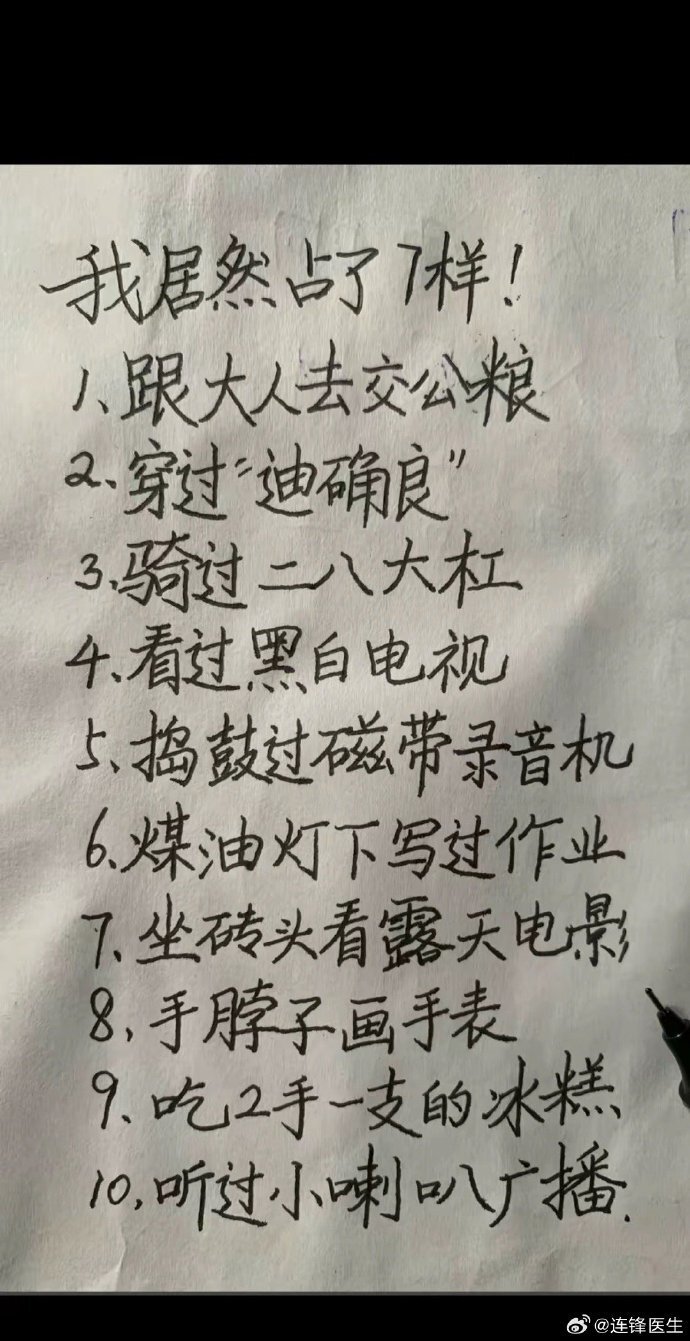 我居然占了7样!
1、跟大人去交公粮
2、穿过“迪确良”
3、骑过二八大杠
4、看过黑白电视
5、捣鼓过磁带录音机
6、煤油灯下写过作业
7、坐砖头看露天电影
8、手脖子画手表
9、吃2手一支的冰糕
10、听过小喇叭广播.
@连锋医生